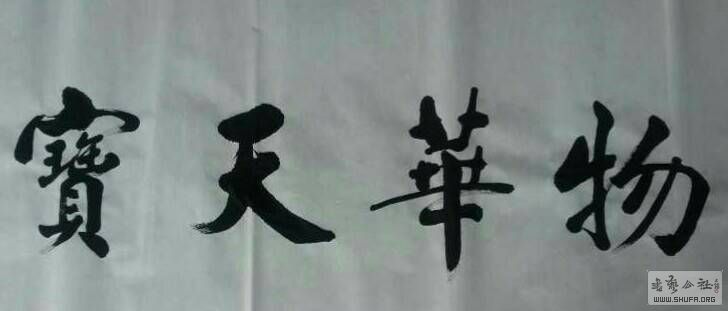 物華天寶
书艺公社
WWW.SHUFA.ORG